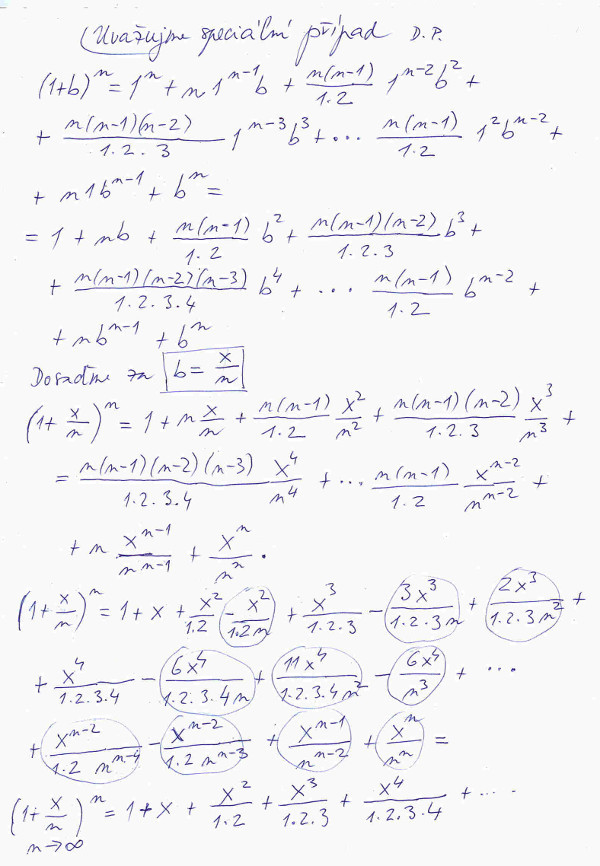 Uvažujme speciální případ D.P.
(1+b)^n = 1^n + n 1^{n-1} b + \frac{n(n-1)}{1.2} 1^{n-2} b^2 +
+ \frac{n(n-1)(n-2)}{1.2.3} 1^{n-3} b^3 + ... \frac{n(n-1)}{1.2} 1^2 b^{n-2} +
+ n1b^{n-1} + b^n =
= 1 + nb + \frac{n(n-1)}{1.2} b^2 + \frac{n(n-1)(n-2)}{1.2.3} b^3 +
+ \frac{n(n-1)(n-2)(n-3)}{1.2.3.4} b^4 + ... \frac{n(n-1)}{1.2} b^{n-2} +
+ nb^{n-1} + b^n
Dosaďme za b = \frac{x}{n}
(1+\frac{x}{n})^n = 1 + n\frac{x}{n} + \frac{n(n-1)}{1.2} \frac{x^2}{n^2} + \frac{n(n-1)(n-2)}{1.2.3} \frac{x^3}{n^3} +
= \frac{n(n-1)(n-2)(n-3)}{1.2.3.4} \frac{x^4}{n^4} + ... \frac{n(n-1)}{1.2} \frac{x^{n-2}}{n^{n-2}} +
+ n \frac{x^{n-1}}{n^{n-1}} + \frac{x^n}{n^n} .
(1+\frac{x}{n})^n = 1 + x + \frac{x^2}{1.2} \frac{-x^2}{1.2n} + \frac{x^3}{1.2.3} - \frac{3x^3}{1.2.3n} + \frac{2x^3}{1.2.3n^2} +
+ \frac{x^4}{1.2.3.4} - \frac{6x^4}{1.2.3.4n} + \frac{11x^4}{1.2.3.4n^2} - \frac{6x^4}{n^3} + ...
+ \frac{x^{n-2}}{1.2 n^{n-4}} - \frac{x^{n-2}}{1.2 n^{n-3}} + \frac{x^{n-1}}{n^{n-2}} + \frac{x^n}{n^n} =
(1+\frac{x}{n})^n = 1 + x + \frac{x^2}{1.2} + \frac{x^3}{1.2.3} + \frac{x^4}{1.2.3.4} + ...
n→∞